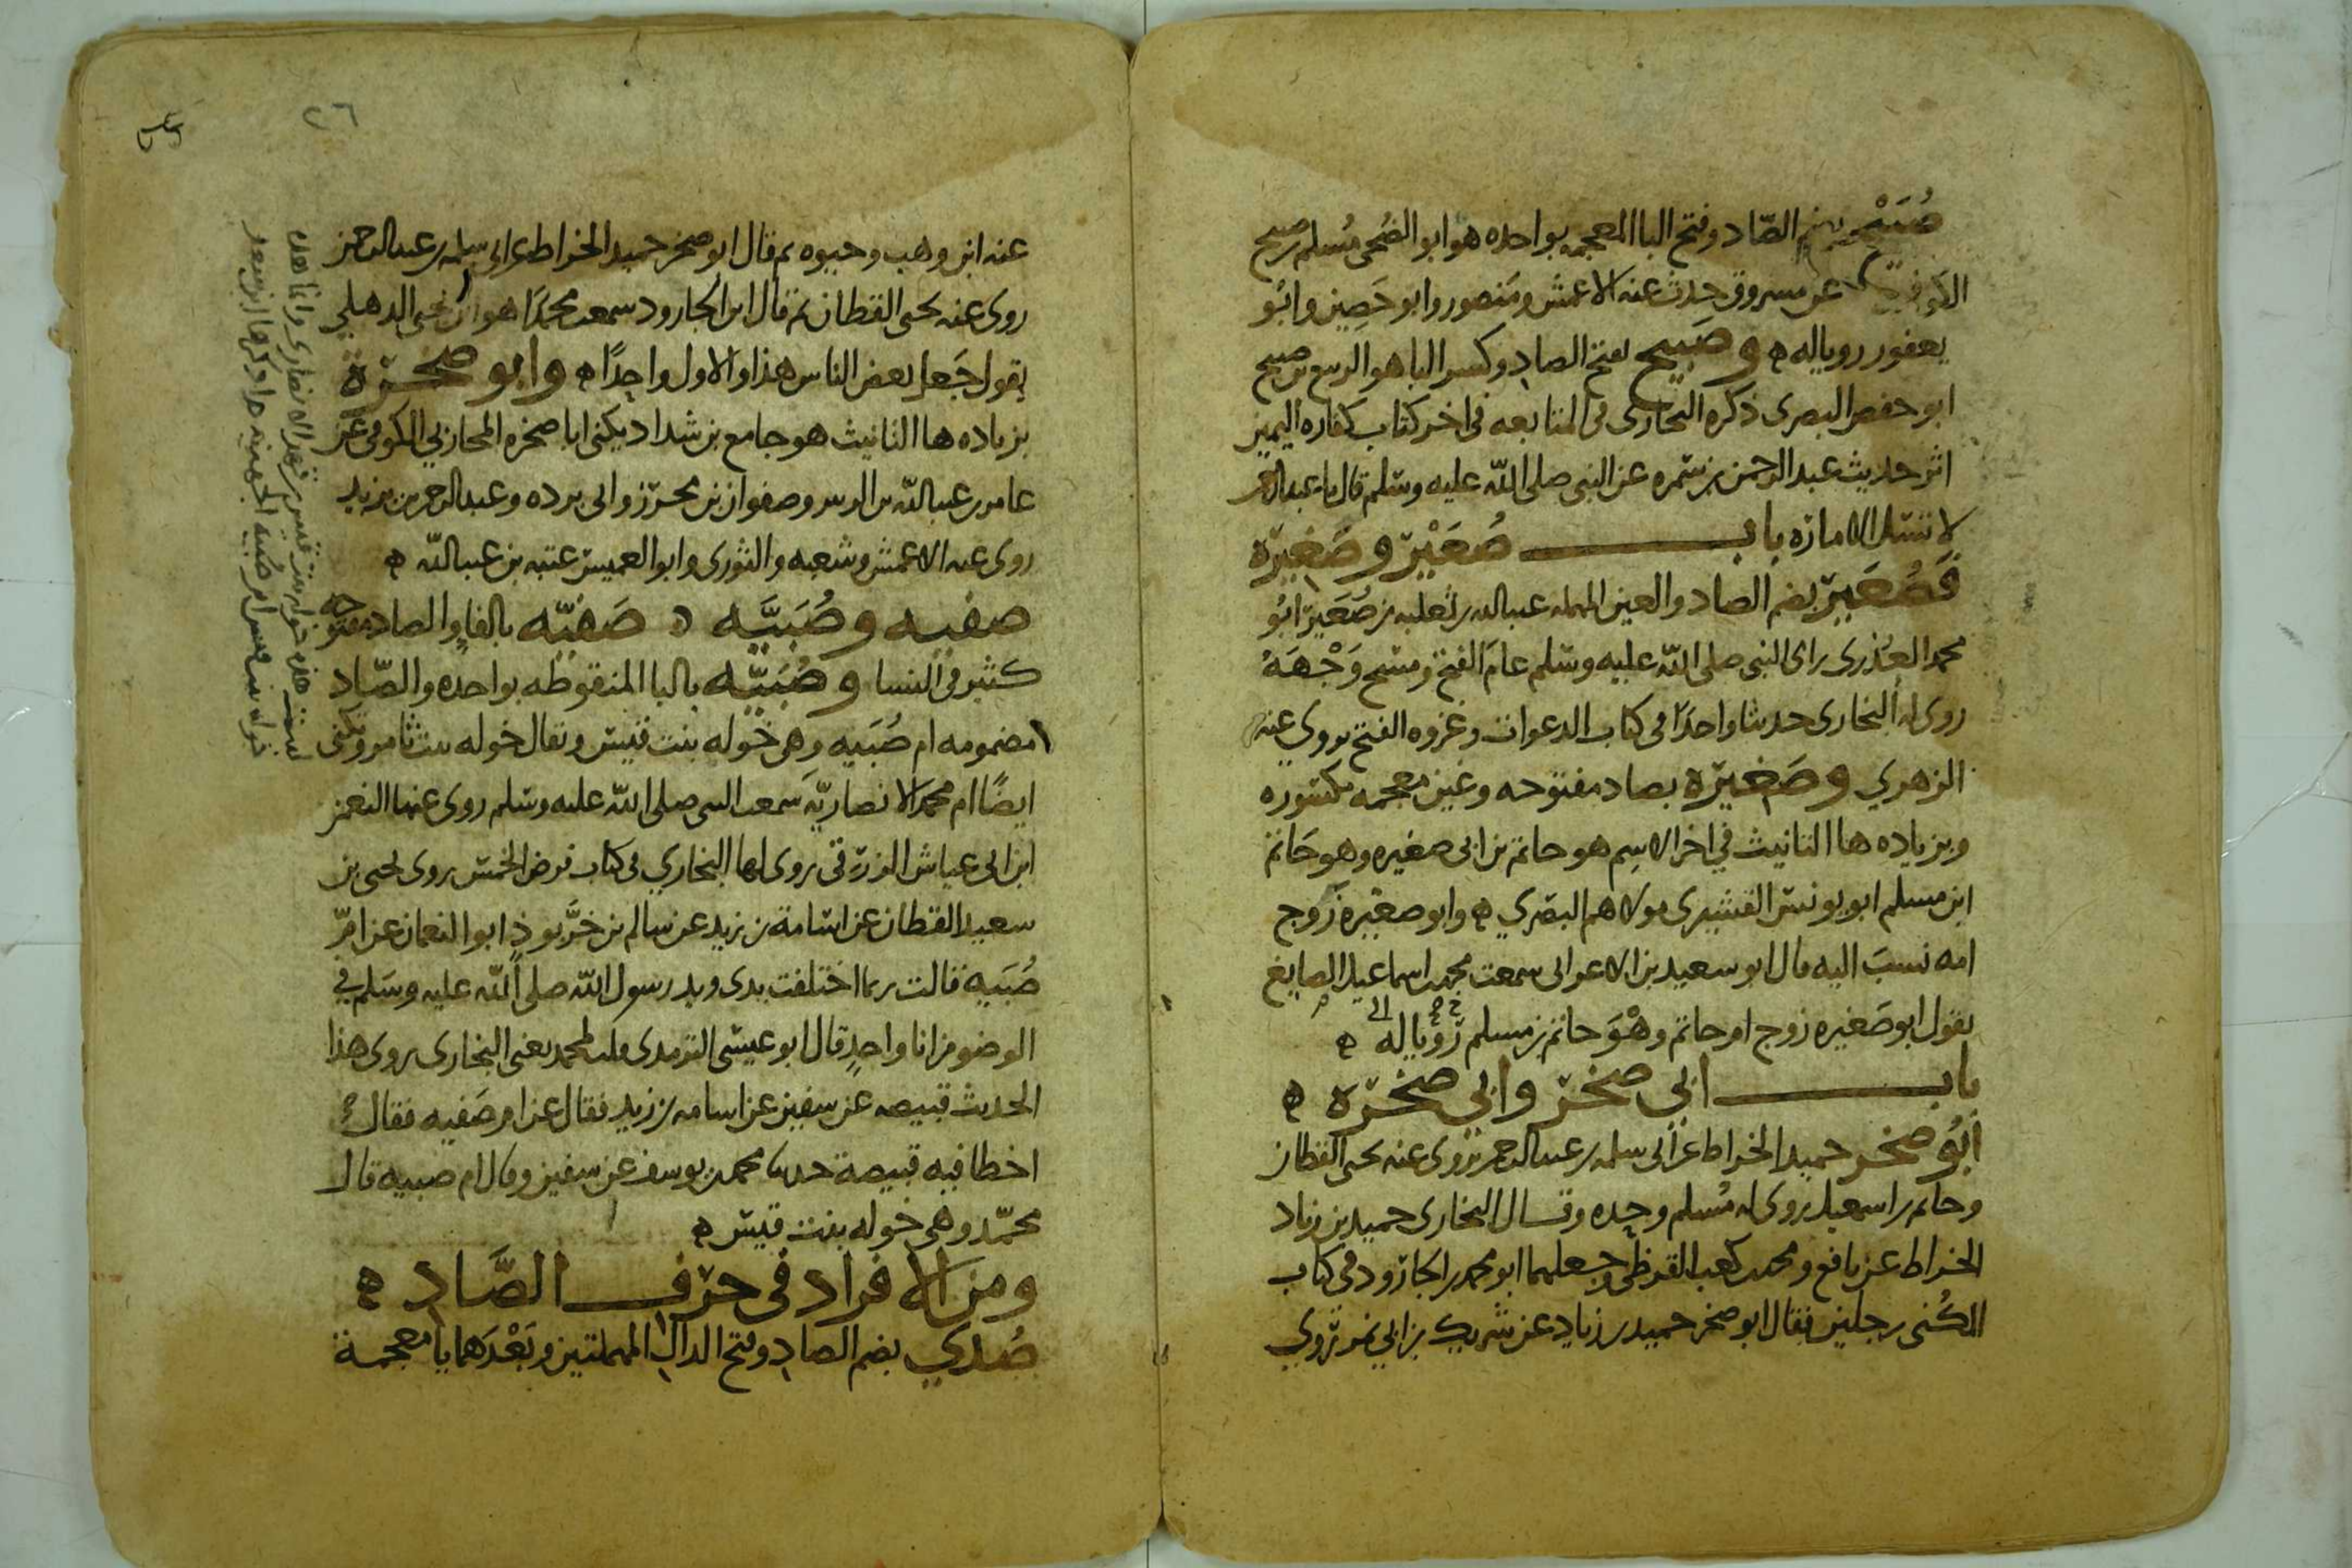 صُبَيْح بضم الصّاد وفتح الباالمعجمه بواحده هو ابو الضُحى مُسلم بن صبيح
الكوفي عن مسروق حدث عنه الاعمش ومنصور وابو حَصِين وابُو
يعفور روياله ه وصَبيح بفتح الصاد وكسر الباهو الربيع بن صبيح
ابو حفص البصرى ذكره البخارى فى المتابعه فى اخر كتاب كفاره اليمين
اثر حديث عبدالرحمن بن سمره عن النبى صلى الله عليه وسلم قال يا عبدالرحمن
لا تسئل الاماره باب صُعَيْر وصَغِيرَة
فَصُعَيْر بضم الصاد والعين المهمله عبدالله بن ثعلبه بن صُعَير ابُو
محمد العُذرى راى النبى صلى الله عليه وسلم عام الفتح ومسح وَجْهَهُ
روى له البخارى حديثا واحدًا فى كتاب الدعوات وغزوه الفتح يروى عنه
الزهري وصَغِيرَه بصاد مفتوحه وغين معجمه مكسوره
وبزياده ها التانيث في اخر الاسِم هو حاتم بن ابى صغيره وهو حَاتم
ابن مسلم ابو يونس القشيرى مولاهم البَصري ه وابو صغيره زوج
امه نسبَ اليه قال ابو سعيد بن الاعرابى سمعت محمد بن اسماعيل الصايغ
يقول ابو صَغيره زوج ام حاتم وهُوَ حاتم بن مسلم رَوَيا له ه
باب ابي صخر وابي صخرة ه
ابُو صخر حميد الخراط عن ابى سلمه بن عبدالرحمن يروى عنه يحيى القطان
وحاتم بن اسمعيل روى له مُسلم وحده وقال البخارى حميد بن زياد
الخراط عن نافع ومحمد بن كعب القرظي وجعلهما ابو محمد بن الجارود فى كتاب
الكُنى رجلين فقال ابو صخر حميد بن زياد عن شريك بن ابي نمر رَوي
عنه ابن وهب وحيوه ثم قال ابو صخر حميد الخراط عن ابى سلمه بن عبدالرحمن
روى عنه يحيى القطان ثم قال ابن الجارود سمعت محمدًا هو ابن يحيى الذهلي
يقول جَعل بعض الناس هذا والاول واحدًا ه وابو صخرة
بزياده ها التانيث هو جامع بن شداد يكنى ابا صخره المحاربي الكوفى عن
عامر بن عبدالله بن الزبير وصفوان بن محرز وابى برده وعبدالرحمن بن يزيد
روى عنه الاعمش وشعبه والثورى وابو العميس عتبه بن عبدالله ه
صفيه وصُبَيَّه ه صَفيّه بالفا والصاد مفتوحه
كثير فى النسا وصُبَيّه بالبا المنقوطه بواحده والصّاد
مضمومه ام صُبَيه وهى خوله بنت قيس ويقال خوله بنت ثامر وتكنى
ايضًا ام محمد الانصاريّه سَمعت النبى صلى الله عليه وسلم روى عنها النعمن
ابن ابى عياش الزرقى روى لها البخاري فى كتاب فرض الخمس روى يحيى بن
سعيد القطان عن اسامة بن زيد عن سالم بن خَرَّبوذ ابو النعمان عن امّ
صُبَيه قالت ربما اختلفت يدى ويد رسول الله صلى الله عليه وسَلم فى
الوضو من انا واحدٍ قال ابو عيسى الترمدى قلت لمحمد يعنى البخارى روى هذا
الحديث قبيصه عن سفين عن اسامه بن زيد فقال عن ام صَفيه فقال
اخطا فيه قبيصة حدثنا محمد بن يوسف عن سفين وقال ام صبيه قال
محمّد وهى خوله بنت قيس ه
ومن الافراد فى حرف الصَّاد ه
صُدَي بضم الصاد وفتح الدال المهملتين وبَعْدَهما يا معجمة
٢٦